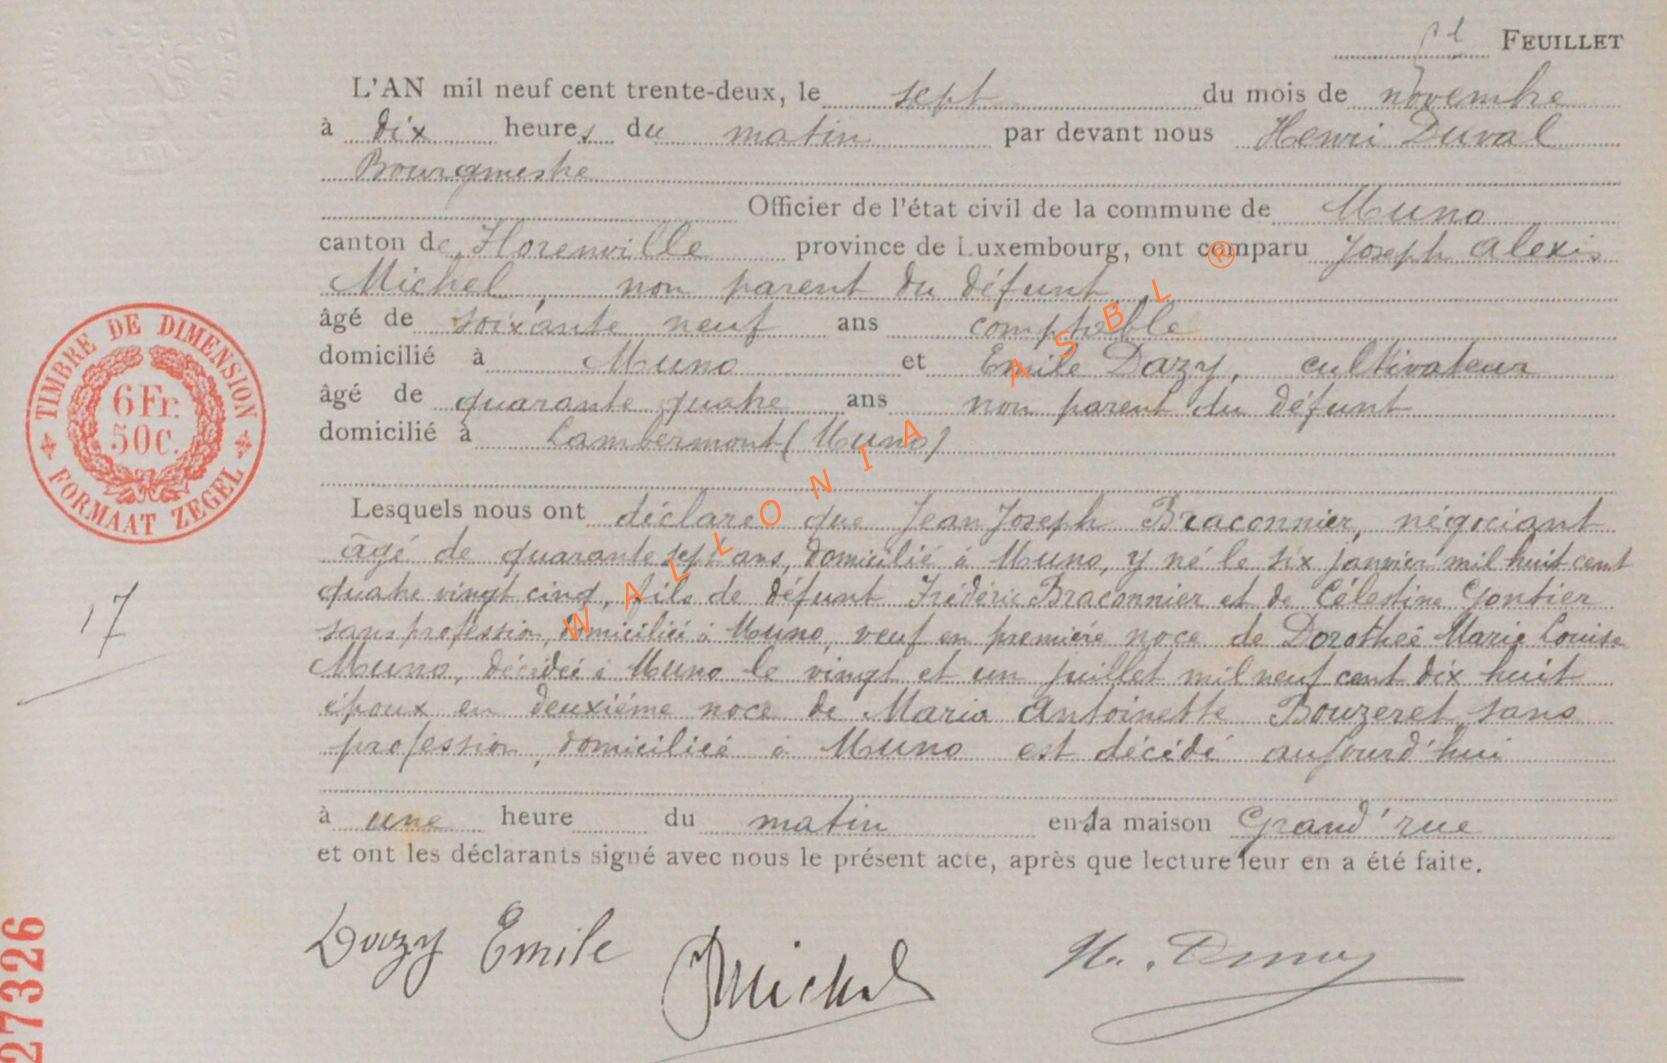 FEUILLET
L'AN mil neuf cent trente-deux, le sept du mois de novembre
à dix heures du matin par devant nous Henri Duval
Bourgmestre
Officier de l'état civil de la commune de Muno
canton de Florenville province de Luxembourg, ont comparu Joseph Alexis
Michel, non parent du défunt
âgé de soixante neuf ans comptable
domicilié à Muno et Emile Dazy, cultivateur
âgé de quarante quatre ans non parent du défunt
domicilié à Lambermont (Muno)
Lesquels nous ont déclaré que Jean Joseph Braconnier, négociant
âgé de quarante sept ans, domicilié à Muno, y né le six janvier mil huit cent
quatre vingt cinq, fils de défunt Frédéric Braconnier et de Célestine Gontier
sans profession, domiciliée à Muno, veuf en première noce de Dorothée Marie Louise
Muno, décédée à Muno le vingt et un juillet mil neuf cent dix huit
époux en deuxième noce de Maria Antoinette Bouzeret sans
profession, domiciliée à Muno est décédé aujourd'hui
à une heure du matin en sa maison Grand'rue
et ont les déclarants signé avec nous le présent acte, après que lecture leur en a été faite.
Dazy Emile JMichel H. Duval
TIMBRE DE DIMENSION
6Fr.
50c.
FORMAAT ZEGEL
17
27326
WALLONIA ASBL ®